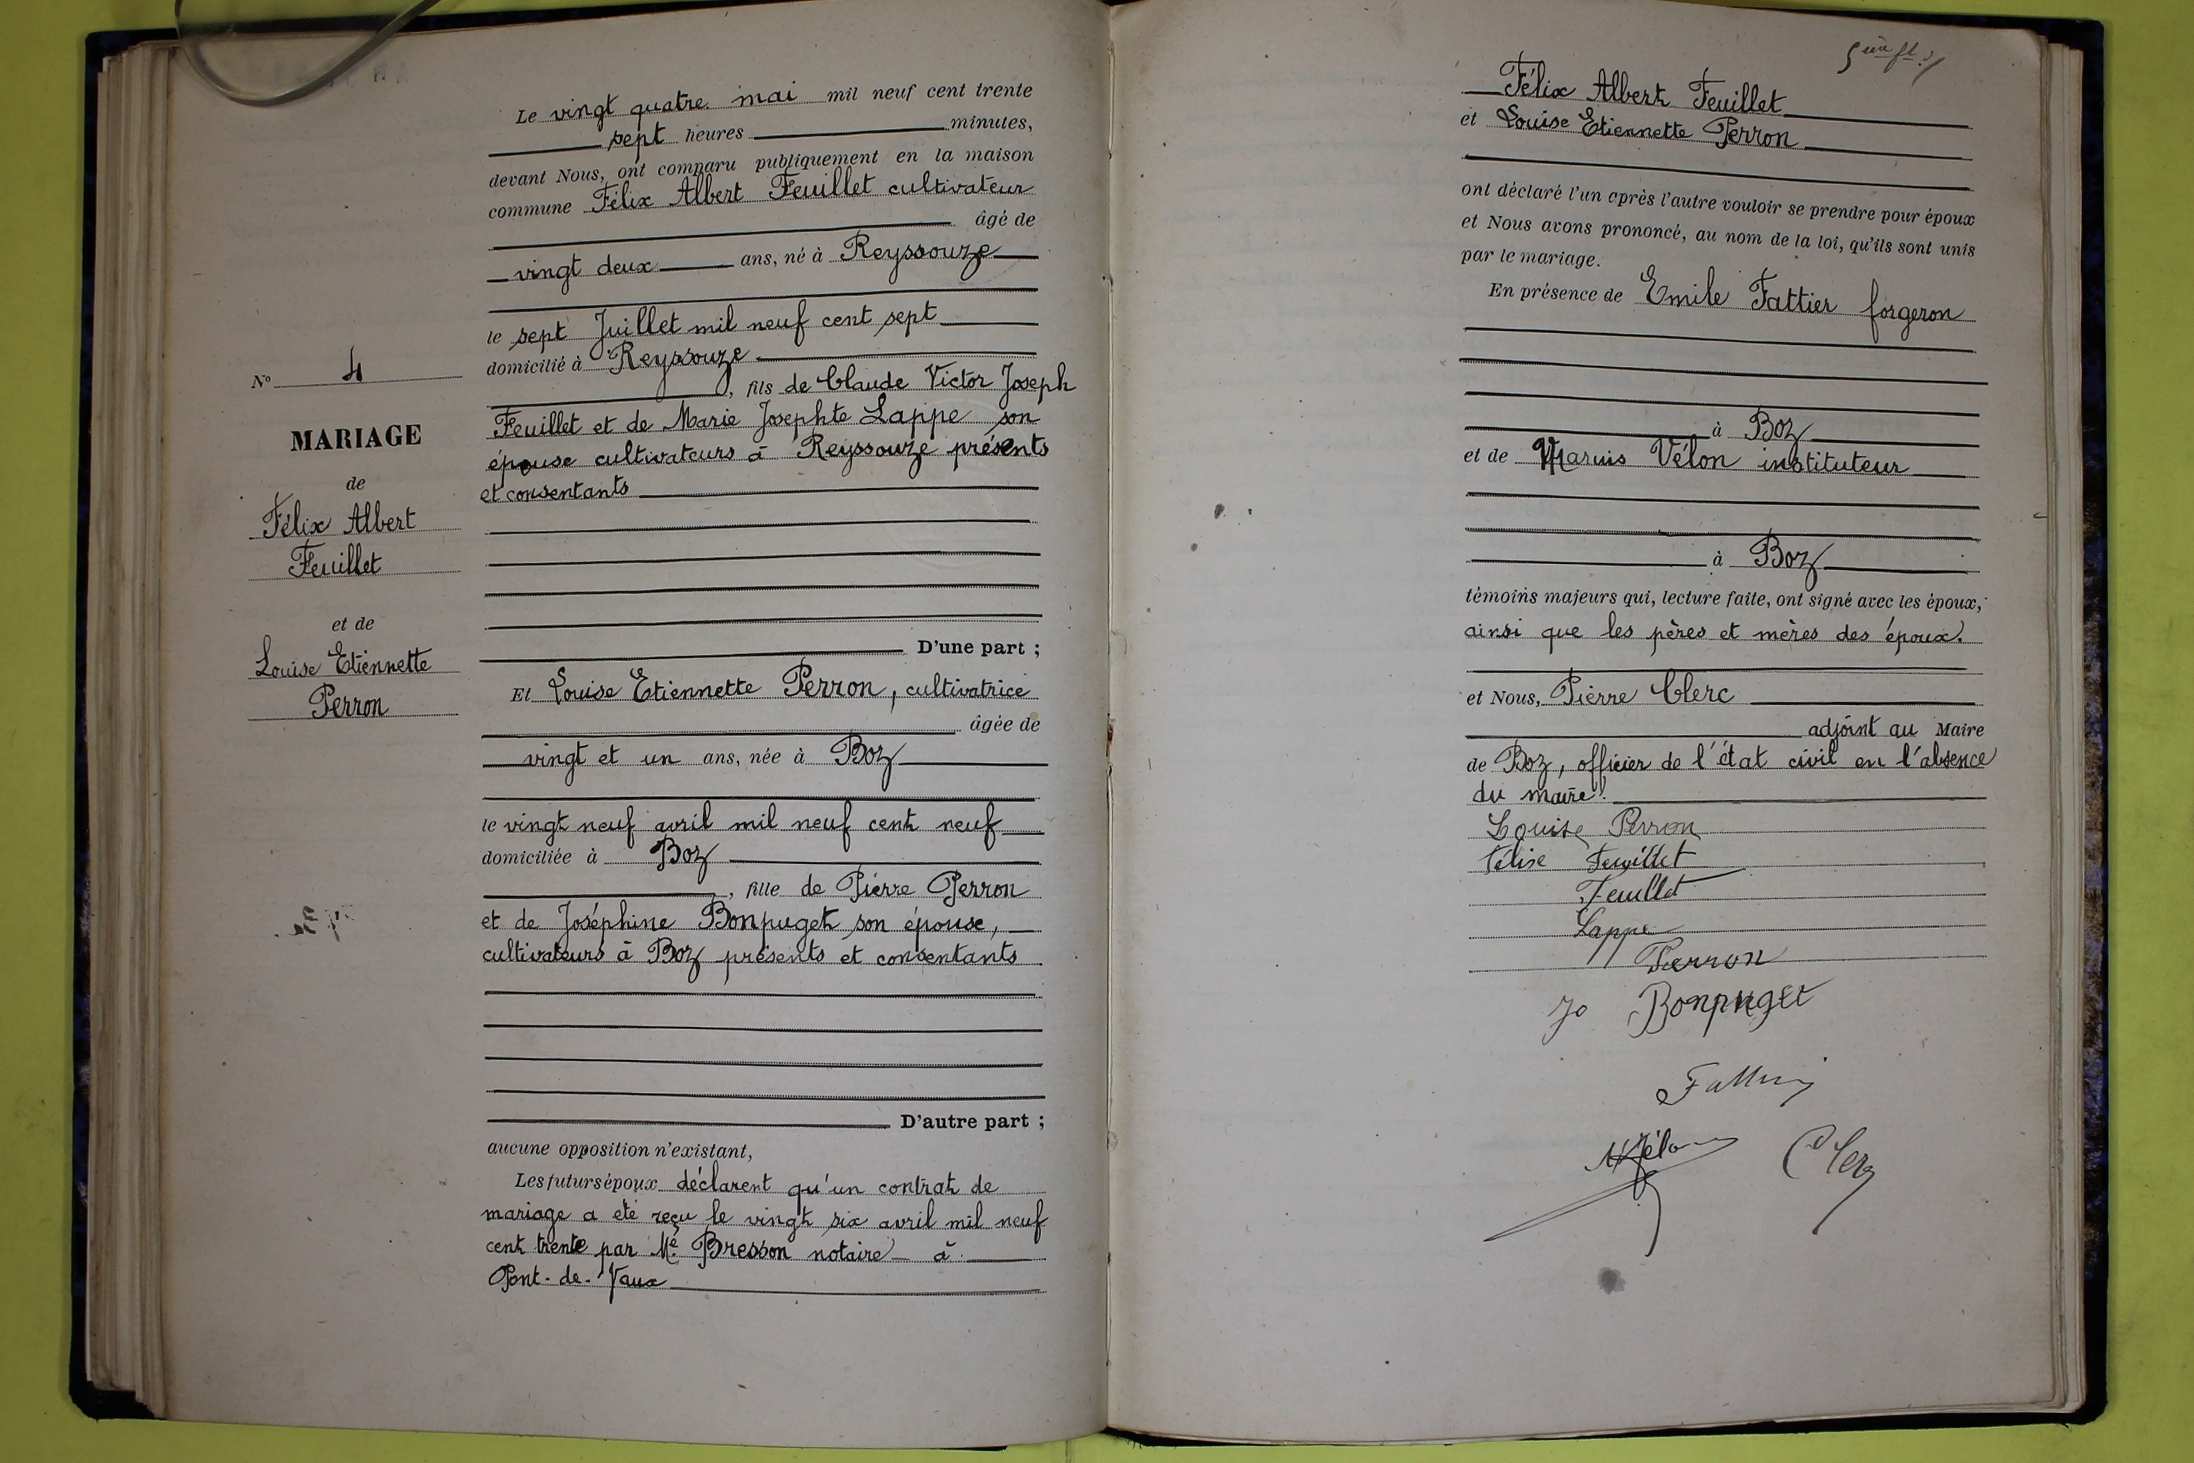 Le vingt quatre mai mil neuf cent trente
sept heures minutes,
devant Nous, ont comparu publiquement en la maison
commune Félix Albert Feuillet cultivateur
âgé de
vingt deux ans, né à Reyssouze
le sept Juillet mil neuf cent sept
domicilié à Reyssouze
, fils de Claude Victor Joseph
Feuillet et de Marie Josephte Lappe son
épouse cultivateurs à Reyssouze présents
et consentants
D'une part ;
Et Louise Etiennette Perron, cultivatrice
âgée de
vingt et un ans, née à Boz
le vingt neuf avril mil neuf cent neuf
domiciliée à Boz
, fille de Pierre Perron
et de Joséphine Bonpuget son épouse,
cultivateurs à Boz présents et consentants
D'autre part ;
aucune opposition n'existant,
Les futurs époux déclarent qu'un contrat de
mariage a été reçu le vingt six avril mil neuf
cent trente par Me Bresson notaire à
Pont-de-Vaux
No 4
MARIAGE
de
Félix Albert
Feuillet
et de
Louise Etiennette
Perron
Félix Albert Feuillet
et Louise Etiennette Perron
ont déclaré l'un après l'autre vouloir se prendre pour époux
et Nous avons prononcé, au nom de la loi, qu'ils sont unis
par le mariage.
En présence de Emile Fattier forgeron
à Boz
et de Marius Vélon instituteur
à Boz
témoins majeurs qui, lecture faite, ont signé avec les époux,
ainsi que les pères et mères des époux.
et Nous, Pierre Clerc
adjoint au Maire
de Boz, officier de l'état civil en l'absence
du maire.
Louise Perron
Félix Feuillet
Feuillet
Lappe
Perron
Jo Bonpuget
Fattier
M Vélon
Clerc